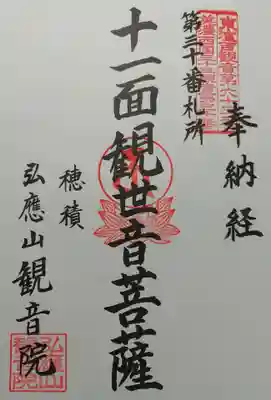 奉納経
第三十番札所
十一面観世音菩薩
穂積
弘應山観音院